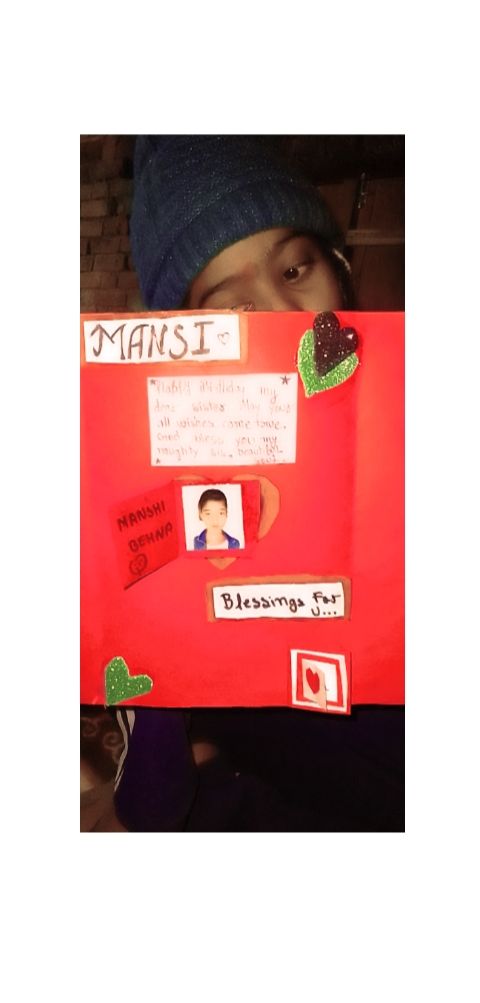 MANSI
Happy Birthday my
dear sister May your
all wishes come true.
God bless you my
naughty sis.
MANSHI
BEHNA
Blessings For...